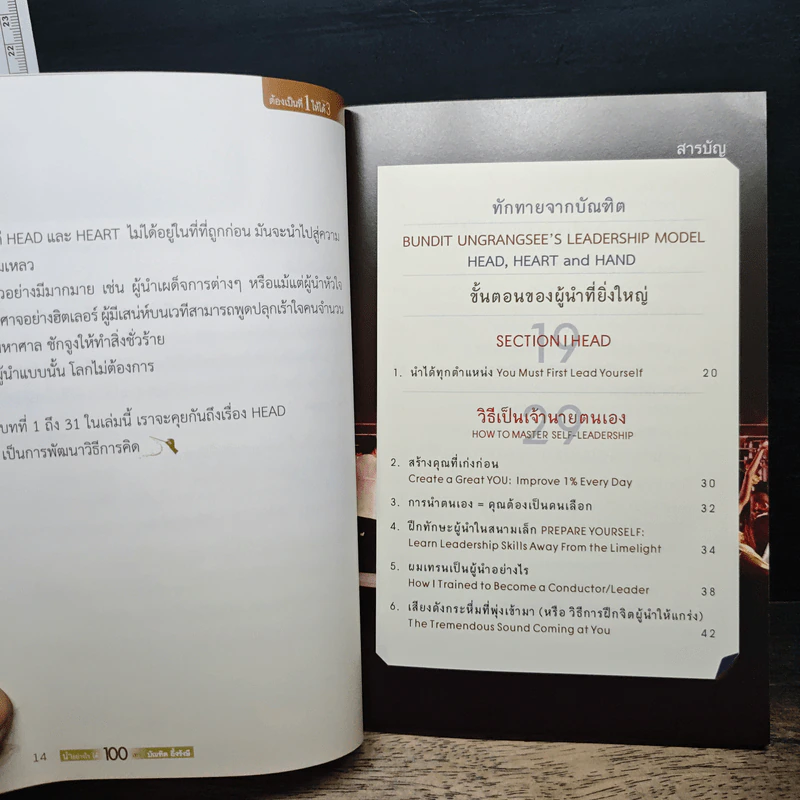 23
22
ต้องเป็นที่ 1 ให้ได้ 3
HEAD และ HEART ไม่ได้อยู่ในที่ที่ถูกก่อน มันจะนำไปสู่ความ
มเหลว
วอย่างมีมากมาย เช่น ผู้นำเผด็จการต่างๆ หรือแม้แต่ผู้นำหัวใจ
ศาจอย่างฮิตเลอร์ ผู้มีเสน่ห์บนเวทีสามารถพูดปลุกเร้าใจคนจำนวน
หาศาล ชักจูงให้ทำสิ่งชั่วร้าย
ผู้นำแบบนั้น โลกไม่ต้องการ
บทที่ 1 ถึง 31 ในเล่มนี้ เราจะคุยกันถึงเรื่อง HEAD
เป็นการพัฒนาวิธีการคิด
14
100
บัณฑิต อึ้งรังษี
สารบัญ
ทักทายจากบัณฑิต
BUNDIT UNGRANGSEE'S LEADERSHIP MODEL
HEAD, HEART and HAND
ขั้นตอนของผู้นำที่ยิ่งใหญ่
19
SECTION I HEAD
1. นำได้ทุกตำแหน่ง You Must First Lead Yourself 20
29
วิธีเป็นเจ้านายตนเอง
HOW TO MASTER SELF-LEADERSHIP
2. สร้างคุณที่เก่งก่อน
Create a Great YOU: Improve 1% Every Day 30
3. การนำตนเอง = คุณต้องเป็นคนเลือก 32
4. ฝึกทักษะผู้นำในสนามเล็ก PREPARE YOURSELF:
Learn Leadership Skills Away From the Limelight 34
5. ผมเทรนเป็นผู้นำอย่างไร
How I Trained to Become a Conductor/Leader 38
6. เสียงดังกระหึ่มที่พุ่งเข้ามา (หรือ วิธีการฝึกจิตผู้นำให้แกร่ง)
The Tremendous Sound Coming at You 42